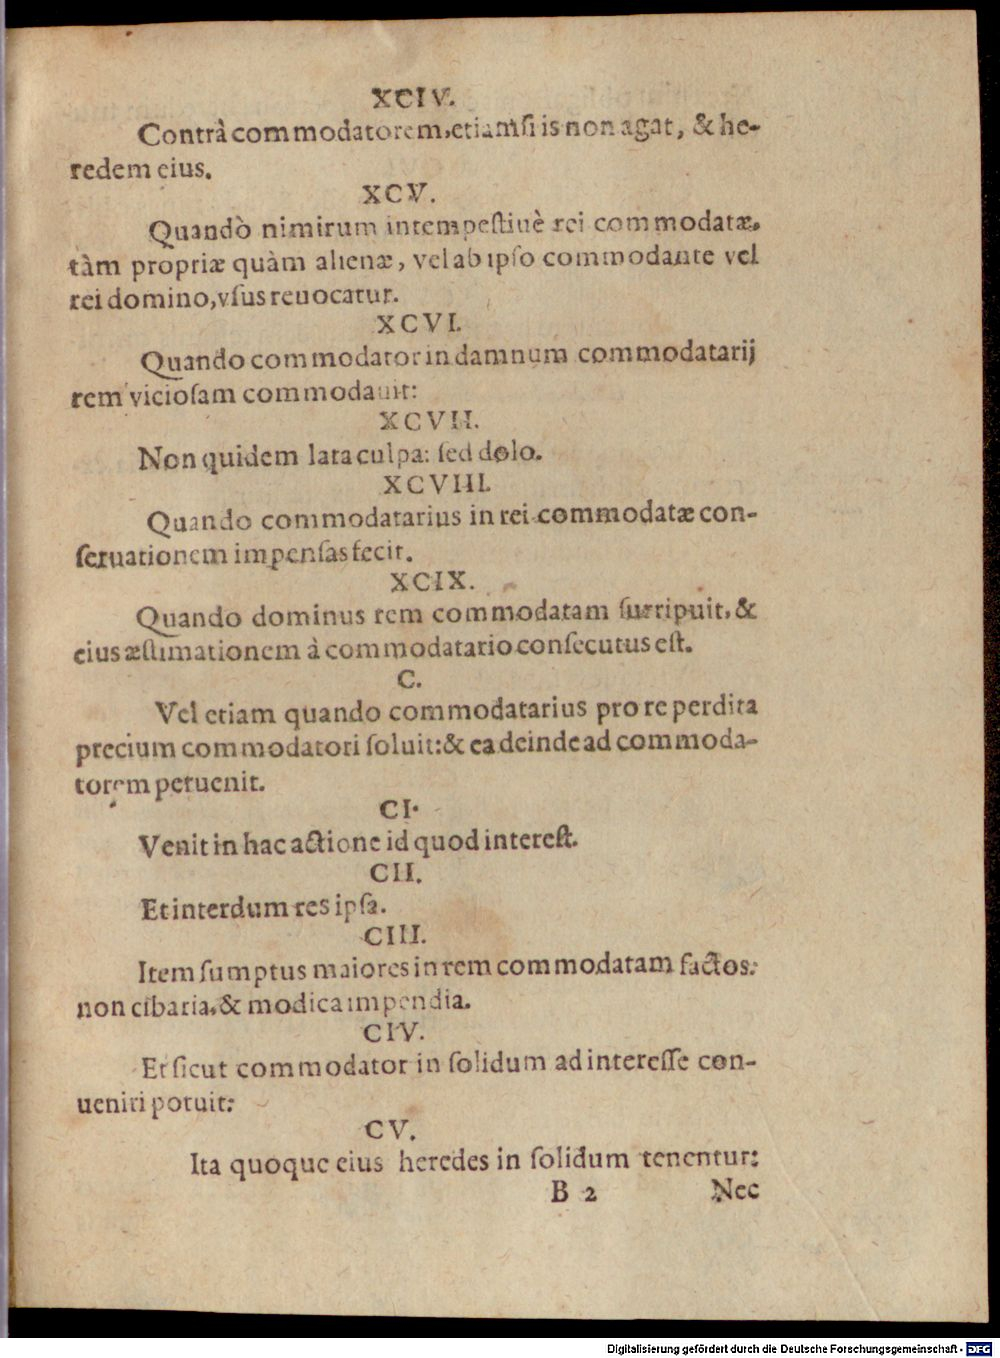 XCIV.
Contrà commodatorem, etiamsi is non agat, & he-
redem eius.
XCV.
Quandò nimirum intempestiuè rei commodatæ,
tàm propriæ quàm alienæ, vel ab ipso commodante vel
rei domino, vsus reuocatur.
XCVI.
Quando commodator in damnum commodatarij
rem viciosam commodauit:
XCVII.
Non quidem lata culpa: sed dolo.
XCVIII.
Quando commodatarius in rei commodatæ con-
seruationem impensas fecit.
XCIX.
Quando dominus rem commodatam surripuit, &
eius æstimationem à commodatario consecutus est.
C.
Vel etiam quando commodatarius pro re perdita
precium commodatori soluit: & ea deinde ad commoda-
torem peruenit.
CI.
Venit in hac actione id quod interest.
CII.
Et interdum res ipsa.
CIII.
Item sumptus maiores in rem commodatam factos:
non cibaria, & modica impendia.
CIV.
Et sicut commodator in solidum ad interesse con-
ueniri potuit:
CV.
Ita quoque eius heredes in solidum tenentur:
B 2 Nec
Digitalisierung gefördert durch die Deutsche Forschungsgemeinschaft - DFG